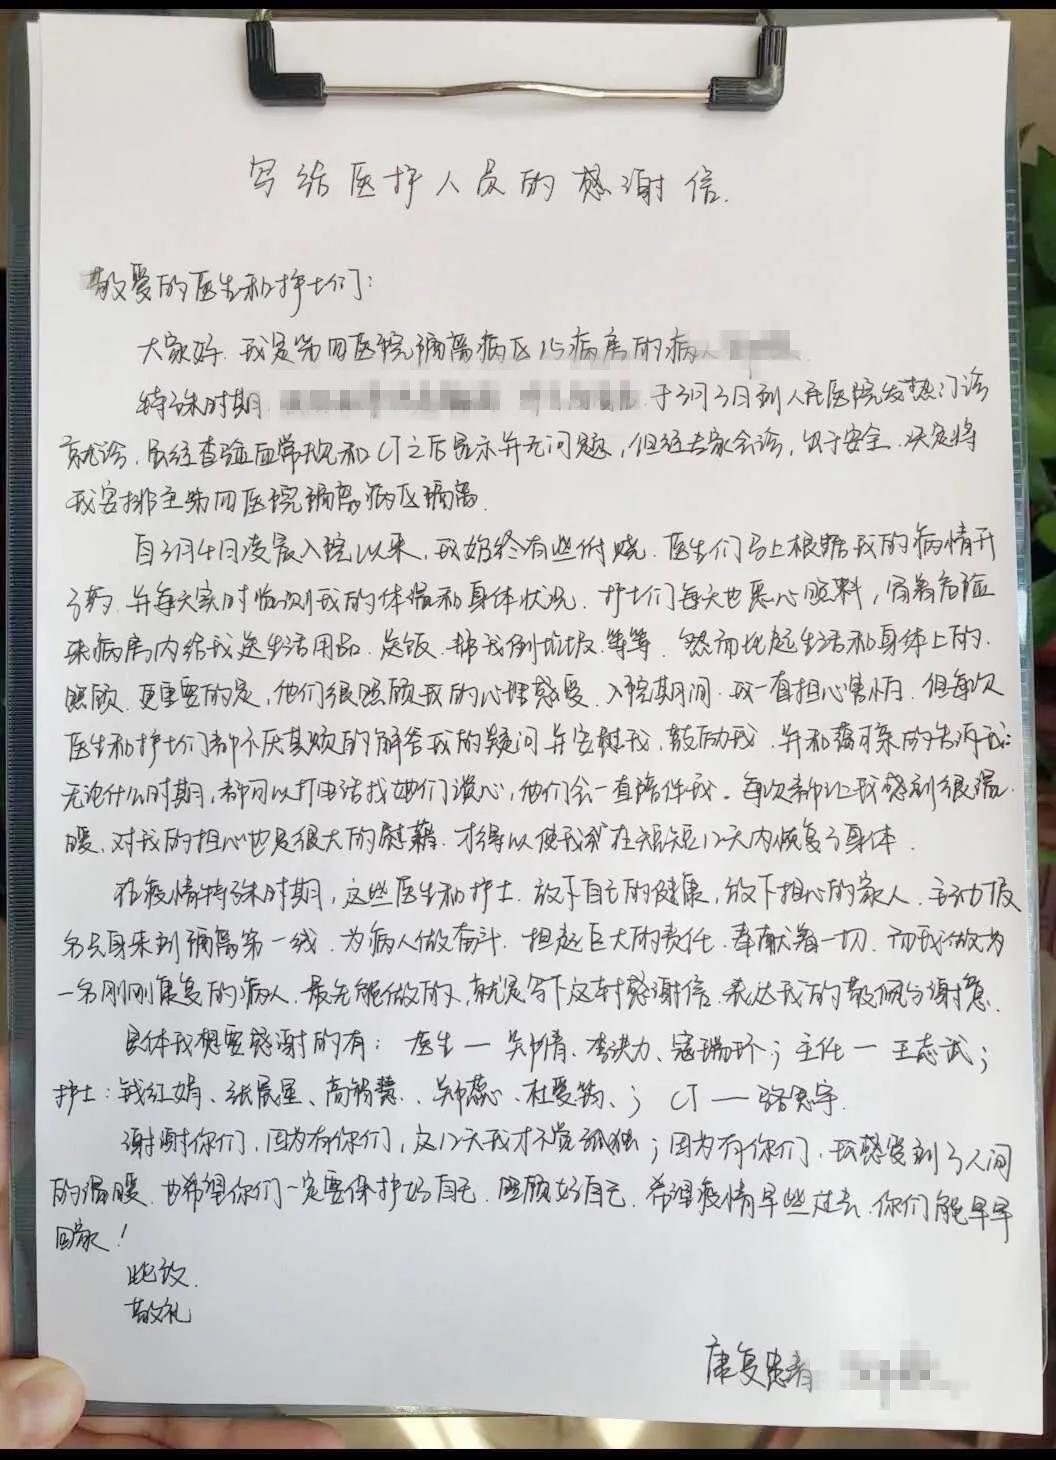 写给医护人员的感谢信.
敬爱的医生和护士们:
大家好.我是第四医院隔离病区15病房的病人
特殊时期 于3月3日到人民医院发热门诊
就诊.虽经查验血常规和CT之后显示并无问题,但经专家会诊,出于安全.决定将
我安排至第四医院隔离病区隔离.
自3月4日凌晨入院以来,我始终有些低烧.医生们马上根据我的病情开
了药.并每天实时监测我的体温和身体状况.护士们每天也悉心照料,冒着危险
来病房内给我送生活用品.送饭.帮我倒垃圾.等等.然而比起生活和身体上的.
照顾.更重要的是,他们很照顾我的心理感受.入院期间.我一直担心害怕.但每次
医生和护士们都不厌其烦的解答我的疑问并安慰我.鼓励我.并和蔼可亲的告诉我:
无论什么时期,都可以打电话找她们谈心,他们会一直陪伴我。每次都让我感到很温
暖、对我的担心也是很大的慰藉.才得以使我在短短12天内恢复了身体.
在疫情特殊时期,这些医生和护士.放下自己的健康,放下担心的家人.主动报
名只身来到隔离第一线.为病人做奋斗.担起巨大的责任.奉献着一切.而我做为
一名刚刚康复的病人.最先能做的,就是写下这封感谢信.表达我的敬佩与谢意.
具体我想要感谢的有: 医生一郑倩、李洪力、寇瑞环;主任一王志武;
护士:钱红娟、张晨星、高 慧、郑蕊心、杜爱 、; CT一骆思宇.
谢谢你们,因为有你们,这12天我才不觉孤独;因为有你们,我感受到了人间
的温暖.也希望你们一定要保护好自己.照顾好自己.希望疫情早些过去.你们能早早
回家!
此致.
敬礼
康复患者